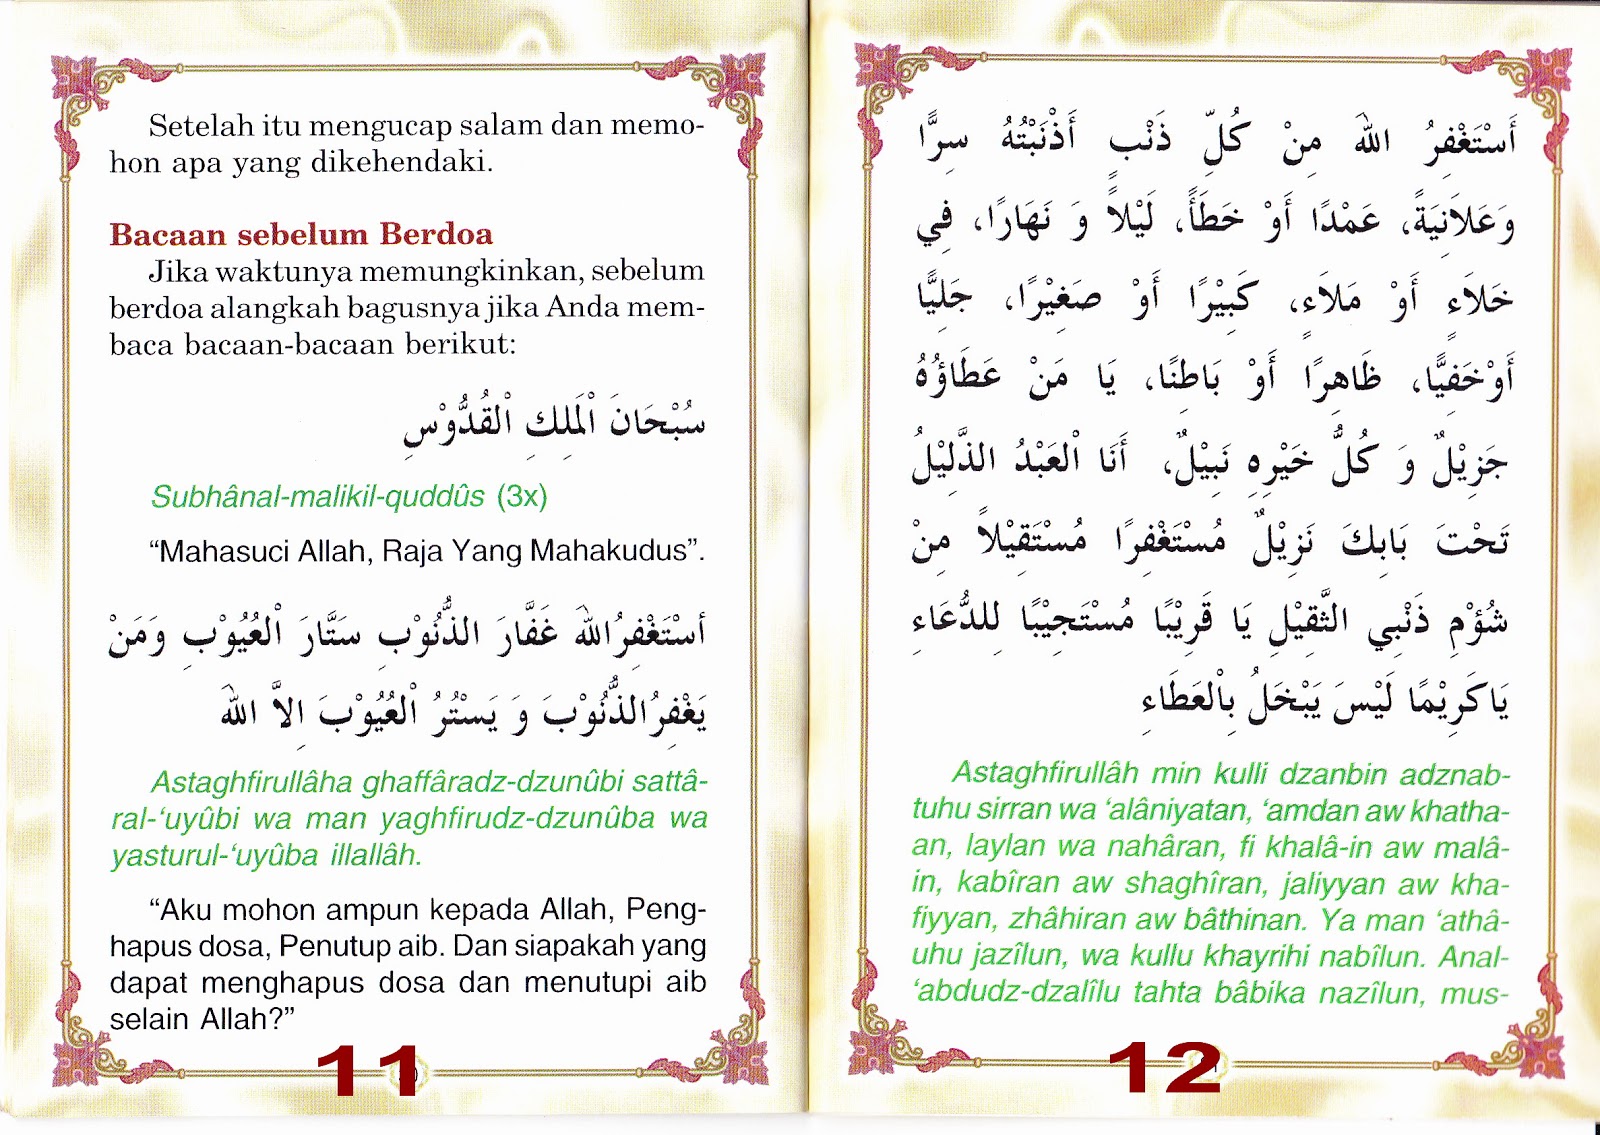 Setelah itu mengucap salam dan memo-
hon apa yang dikehendaki.
Bacaan sebelum Berdoa
Jika waktunya memungkinkan, sebelum
berdoa alangkah bagusnya jika Anda mem-
baca bacaan-bacaan berikut:
سُبْحَانَ الْمَلِكِ الْقُدُّوْسِ
Subhânal-malikil-quddûs (3x)
“Mahasuci Allah, Raja Yang Mahakudus”.
أسْتَغْفِرُاللهَ غَفَّارَ الذُّنُوْبِ سَتَّارَ الْعُيُوْبِ وَمَنْ
يَغْفِرُالذُّنُوْبَ وَ يَسْتُرُ الْعُيُوْبَ اِلاَّ اللهَ
Astaghfirullâha ghaffâradz-dzunûbi sattâ-
ral-‘uyûbi wa man yaghfirudz-dzunûba wa
yasturul-‘uyûba illallâh.
“Aku mohon ampun kepada Allah, Peng-
hapus dosa, Penutup aib. Dan siapakah yang
dapat menghapus dosa dan menutupi aib
selain Allah?”
11
أَسْتَغْفِرُ اللهَ مِنْ كُلِّ ذَنْبٍ أَذْنَبْتُهُ سِرًّا
وَعَلاَنِيَةً، عَمْدًا أَوْ خَطَأً، لَيْلاً وَ نَهَارًا، فِي
خَلاَءٍ أَوْ مَلاَءٍ، كَبِيْرًا أَوْ صَغِيْرًا، جَلِيًّا
أَوْخَفِيًّا، ظَاهِرًا أَوْ بَاطِنًا، يَا مَنْ عَطَاؤُهُ
جَزِيْلٌ وَ كُلُّ خَيْرِهِ نَبِيْلٌ، أَنَا الْعَبْدُ الذَّلِيْلُ
تَحْتَ بَابِكَ نَزِيْلٌ مُسْتَغْفِرًا مُسْتَقِيْلاً مِنْ
شُؤْمِ ذَنْبِي الثَّقِيْلِ يَا قَرِيْبًا مُسْتَجِيْبًا لِلدُّعَاءِ
يَاكَرِيْمًا لَيْسَ يَبْخَلُ بِالْعَطَاءِ
Astaghfirullâh min kulli dzanbin adznab-
tuhu sirran wa ‘alâniyatan, ‘amdan aw khatha-
an, laylan wa nahâran, fi khalâ-in aw malâ-
in, kabîran aw shaghîran, jaliyyan aw kha-
fiyyan, zhâhiran aw bâthinan. Ya man ‘athâ-
uhu jazîlun, wa kullu khayrihi nabîlun. Anal-
‘abdudz-dzalîlu tahta bâbika nazîlun, mus-
12